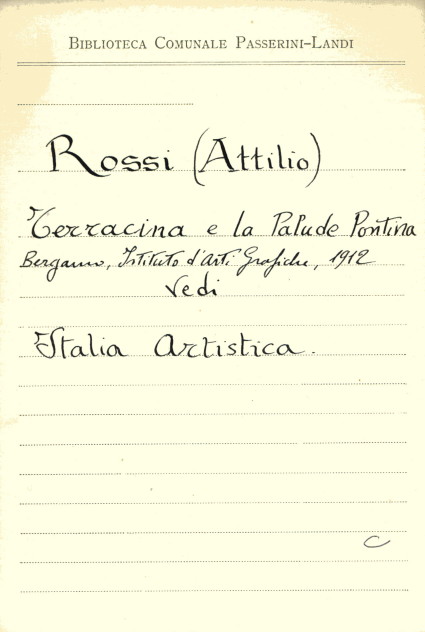 Biblioteca Comunale Passerini-Landi
Rossi (Attilio)
Terracina e la Palude Pontina
Bergamo, Istituto d'Arti Grafiche, 1912
Vedi
Italia Artistica.
C